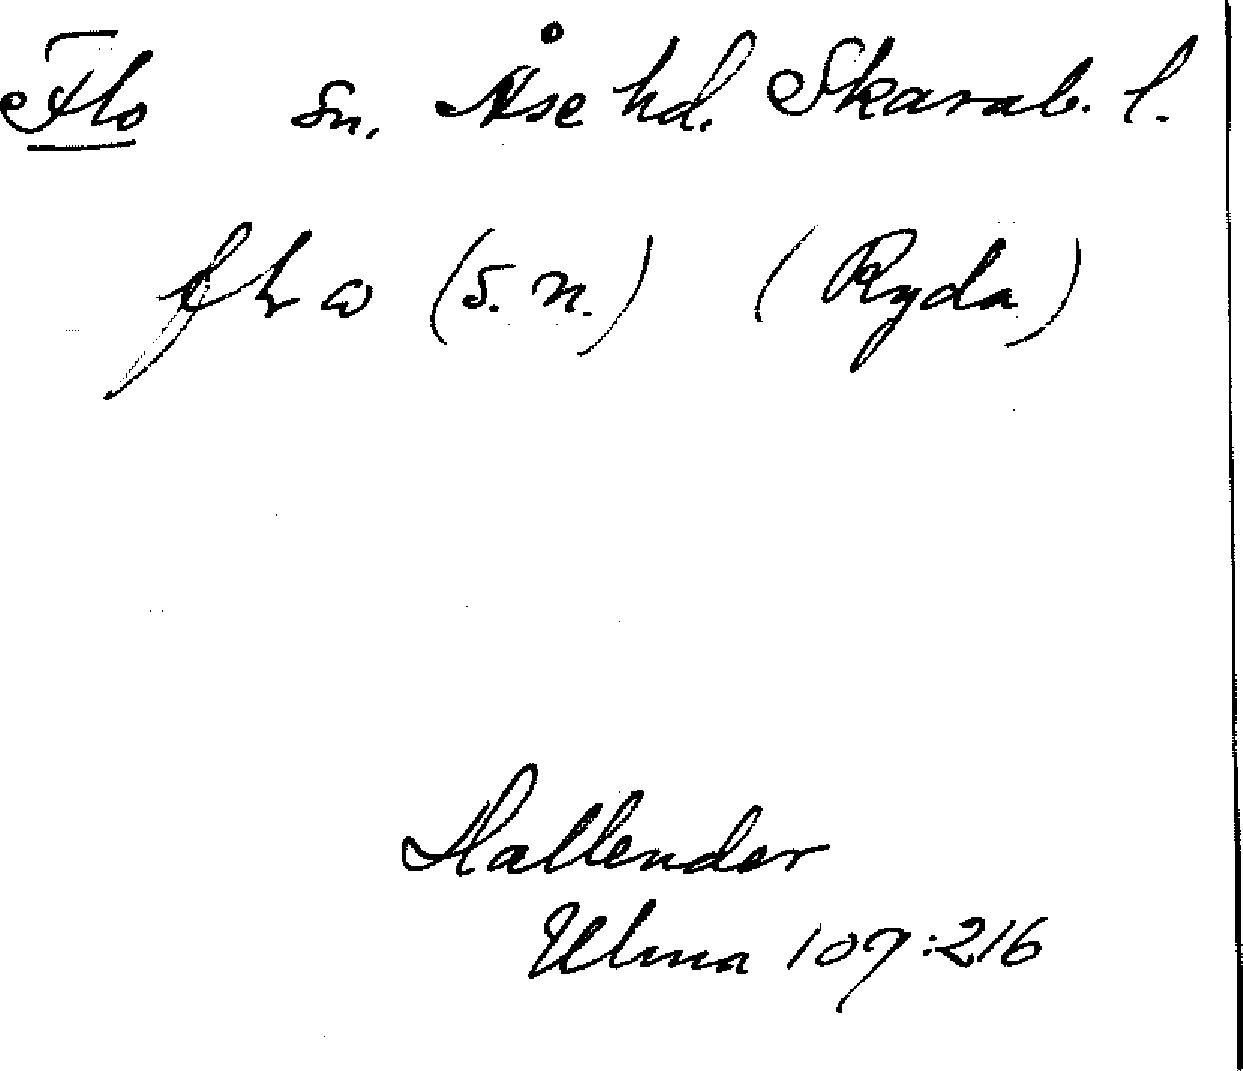 Flo sn. Åse hd. Skarab. l.
(s. n.) (Ryda)
Hallender
Ulma 107:216